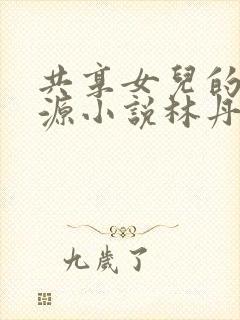 共享女兒的
源小說林丹
九歲了